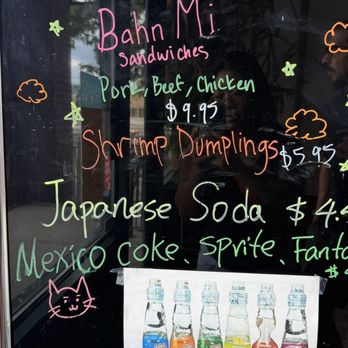 Bahn Mi
Sandwiches
Pork, Beef, Chicken
$9.95
Shrimp Dumplings $5.95
Japanese Soda $4.
Mexico Coke, Sprite, Fanta
$